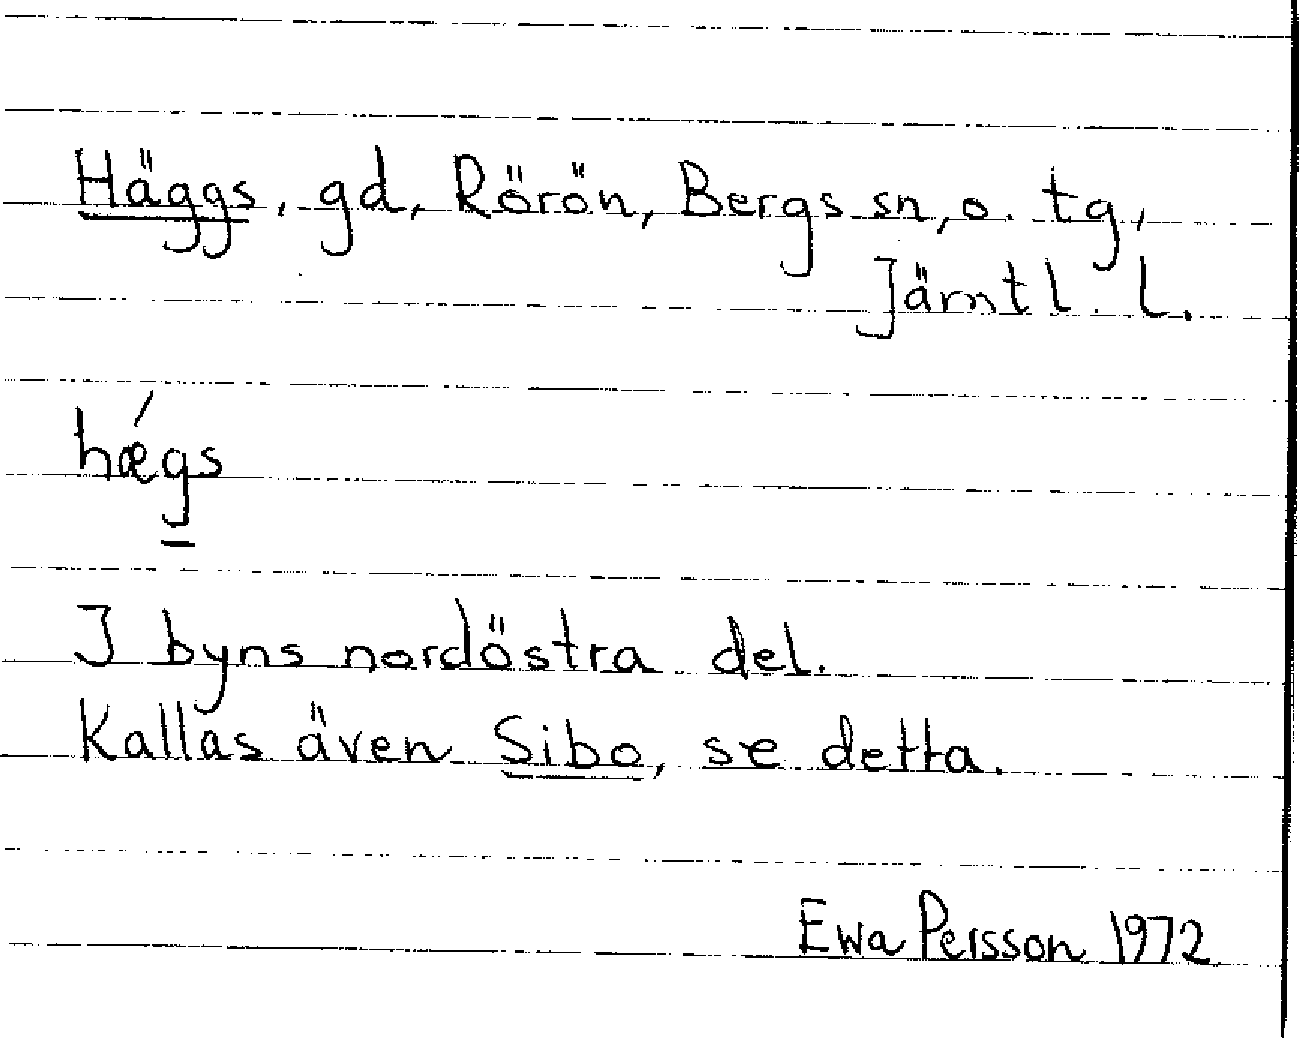 Häggs, gd, Rörön, Bergs sn, o. tg,
Jämtl. l.
hæ´gs
I byns nordöstra del.
Kallas även Sibo, se detta.
Ewa Persson 1972